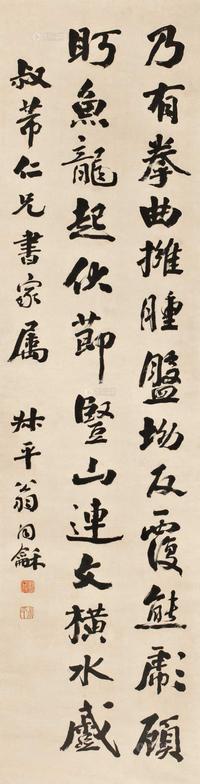 乃有拳曲擁腫盤坳反覆熊彪顧
眄魚龍起伏節豎山連文橫水蹙
叔芾仁兄書家屬
叔平翁同龢